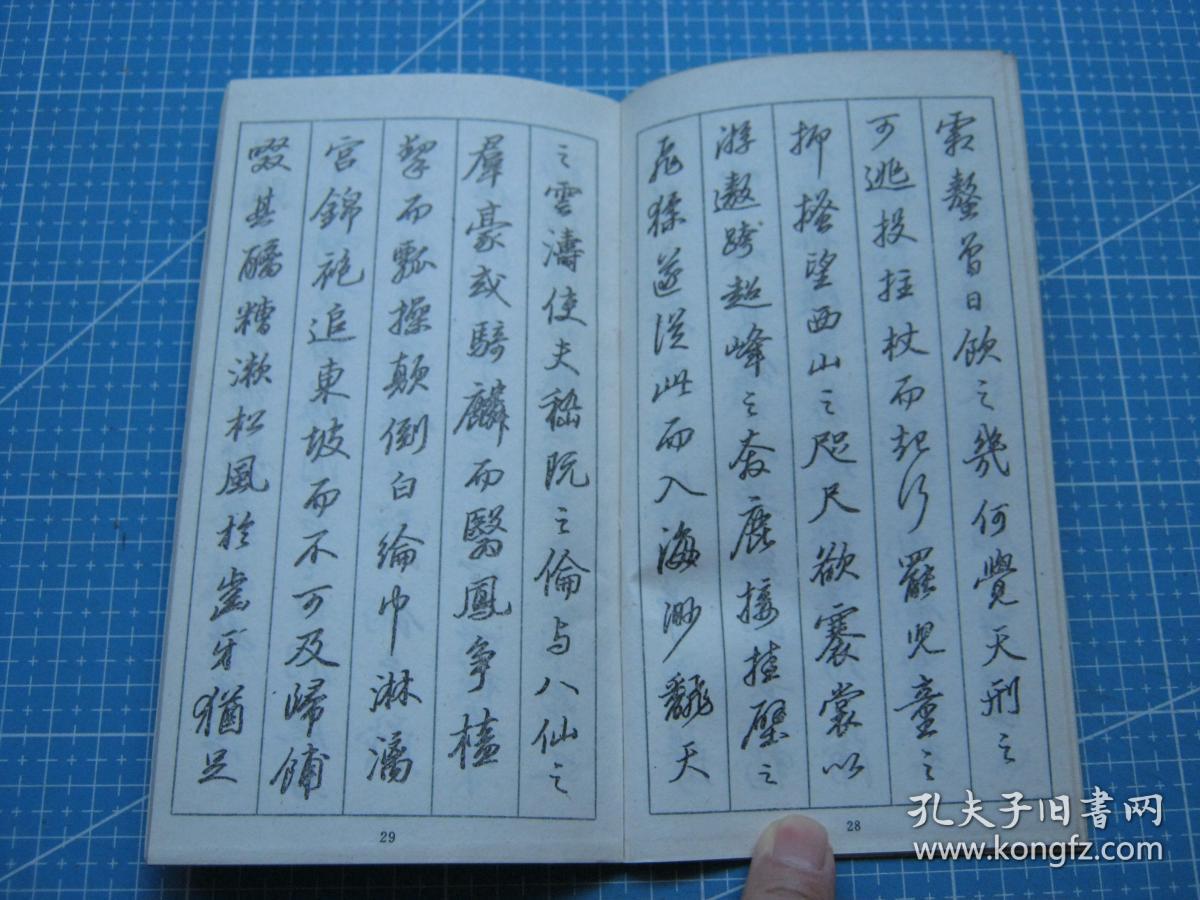 霜螯曾日飲之幾何覺天刑之
可逃投拄杖而起行罷兒童之
抑搔望西山之咫尺欲褰裳以
游遨跨超峰之奔鹿接挂壁之
飛猱遂從此而入海渺翻天
28
之雲濤使夫嵇阮之倫与八仙之
羣豪或騎麟而翳鳳爭榼
挈而瓢操顛倒白綸巾淋漓
宮錦袍追東坡而不可及歸餔
啜其醨糟漱松風於齒牙猶足
29
孔夫子旧书网
www.kongfz.com